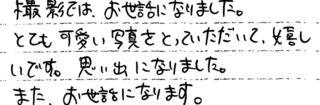 撮影では、お世話になりました。
とても可愛い写真をとっていただいて、嬉し
いです。思い出になりました。
また、お世話になります。